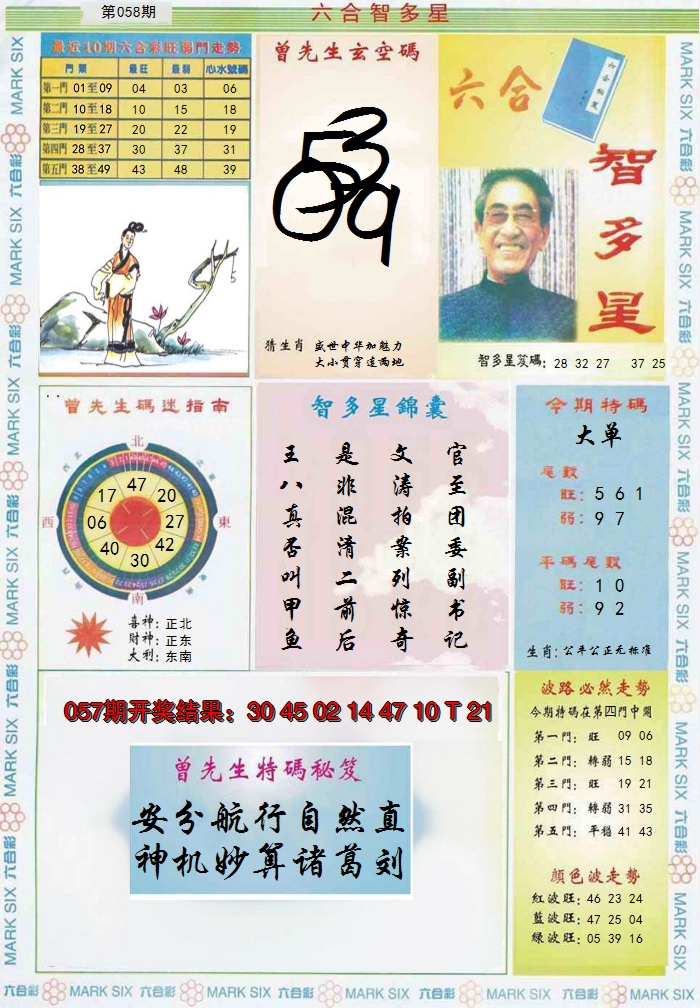 第058期
六合智多星
最近10期六合彩旺弱門走勢
門類 最旺 最弱 心水號碼
第一門 01至09 04 03 06
第二門 10至18 10 15 18
第三門 19至27 20 22 19
第四門 28至37 30 37 31
第五門 38至49 43 48 39
曾先生玄空碼
猜生肖 盛世中华加魅力
大小贯穿连两地
六合
智多星
智多星笈碼: 28 32 27 37 25
曾先生碼迷指南
北
西
東
南
47
17 20
06 27
40 42
30
喜神: 正北
財神: 正东
大利: 东南
智多星錦囊
官至团委副书记
文涛拍案列惊奇
是非混清二前后
王八真否叫甲鱼
今期特碼
大单
尾數
旺: 5 6 1
弱: 9 7
平碼尾數
旺: 1 0
弱: 9 2
生肖: 公平公正无标准
057期开奖结果: 30 45 02 14 47 10 T 21
曾先生特碼秘笈
安分航行自然直
神机妙算诸葛刘
波路必然走勢
今期特碼在第四門中開
第一門: 旺 09 06
第二門: 轉弱 15 18
第三門: 旺 19 21
第四門: 轉弱 31 35
第五門: 平穩 41 43
顏色波走勢
紅波旺: 46 23 24
藍波旺: 47 25 04
綠波旺: 05 39 16
六合彩 MARK SIX 六合彩 MARK SIX 六合彩 MARK SIX 六合彩 MARK SIX 六合彩